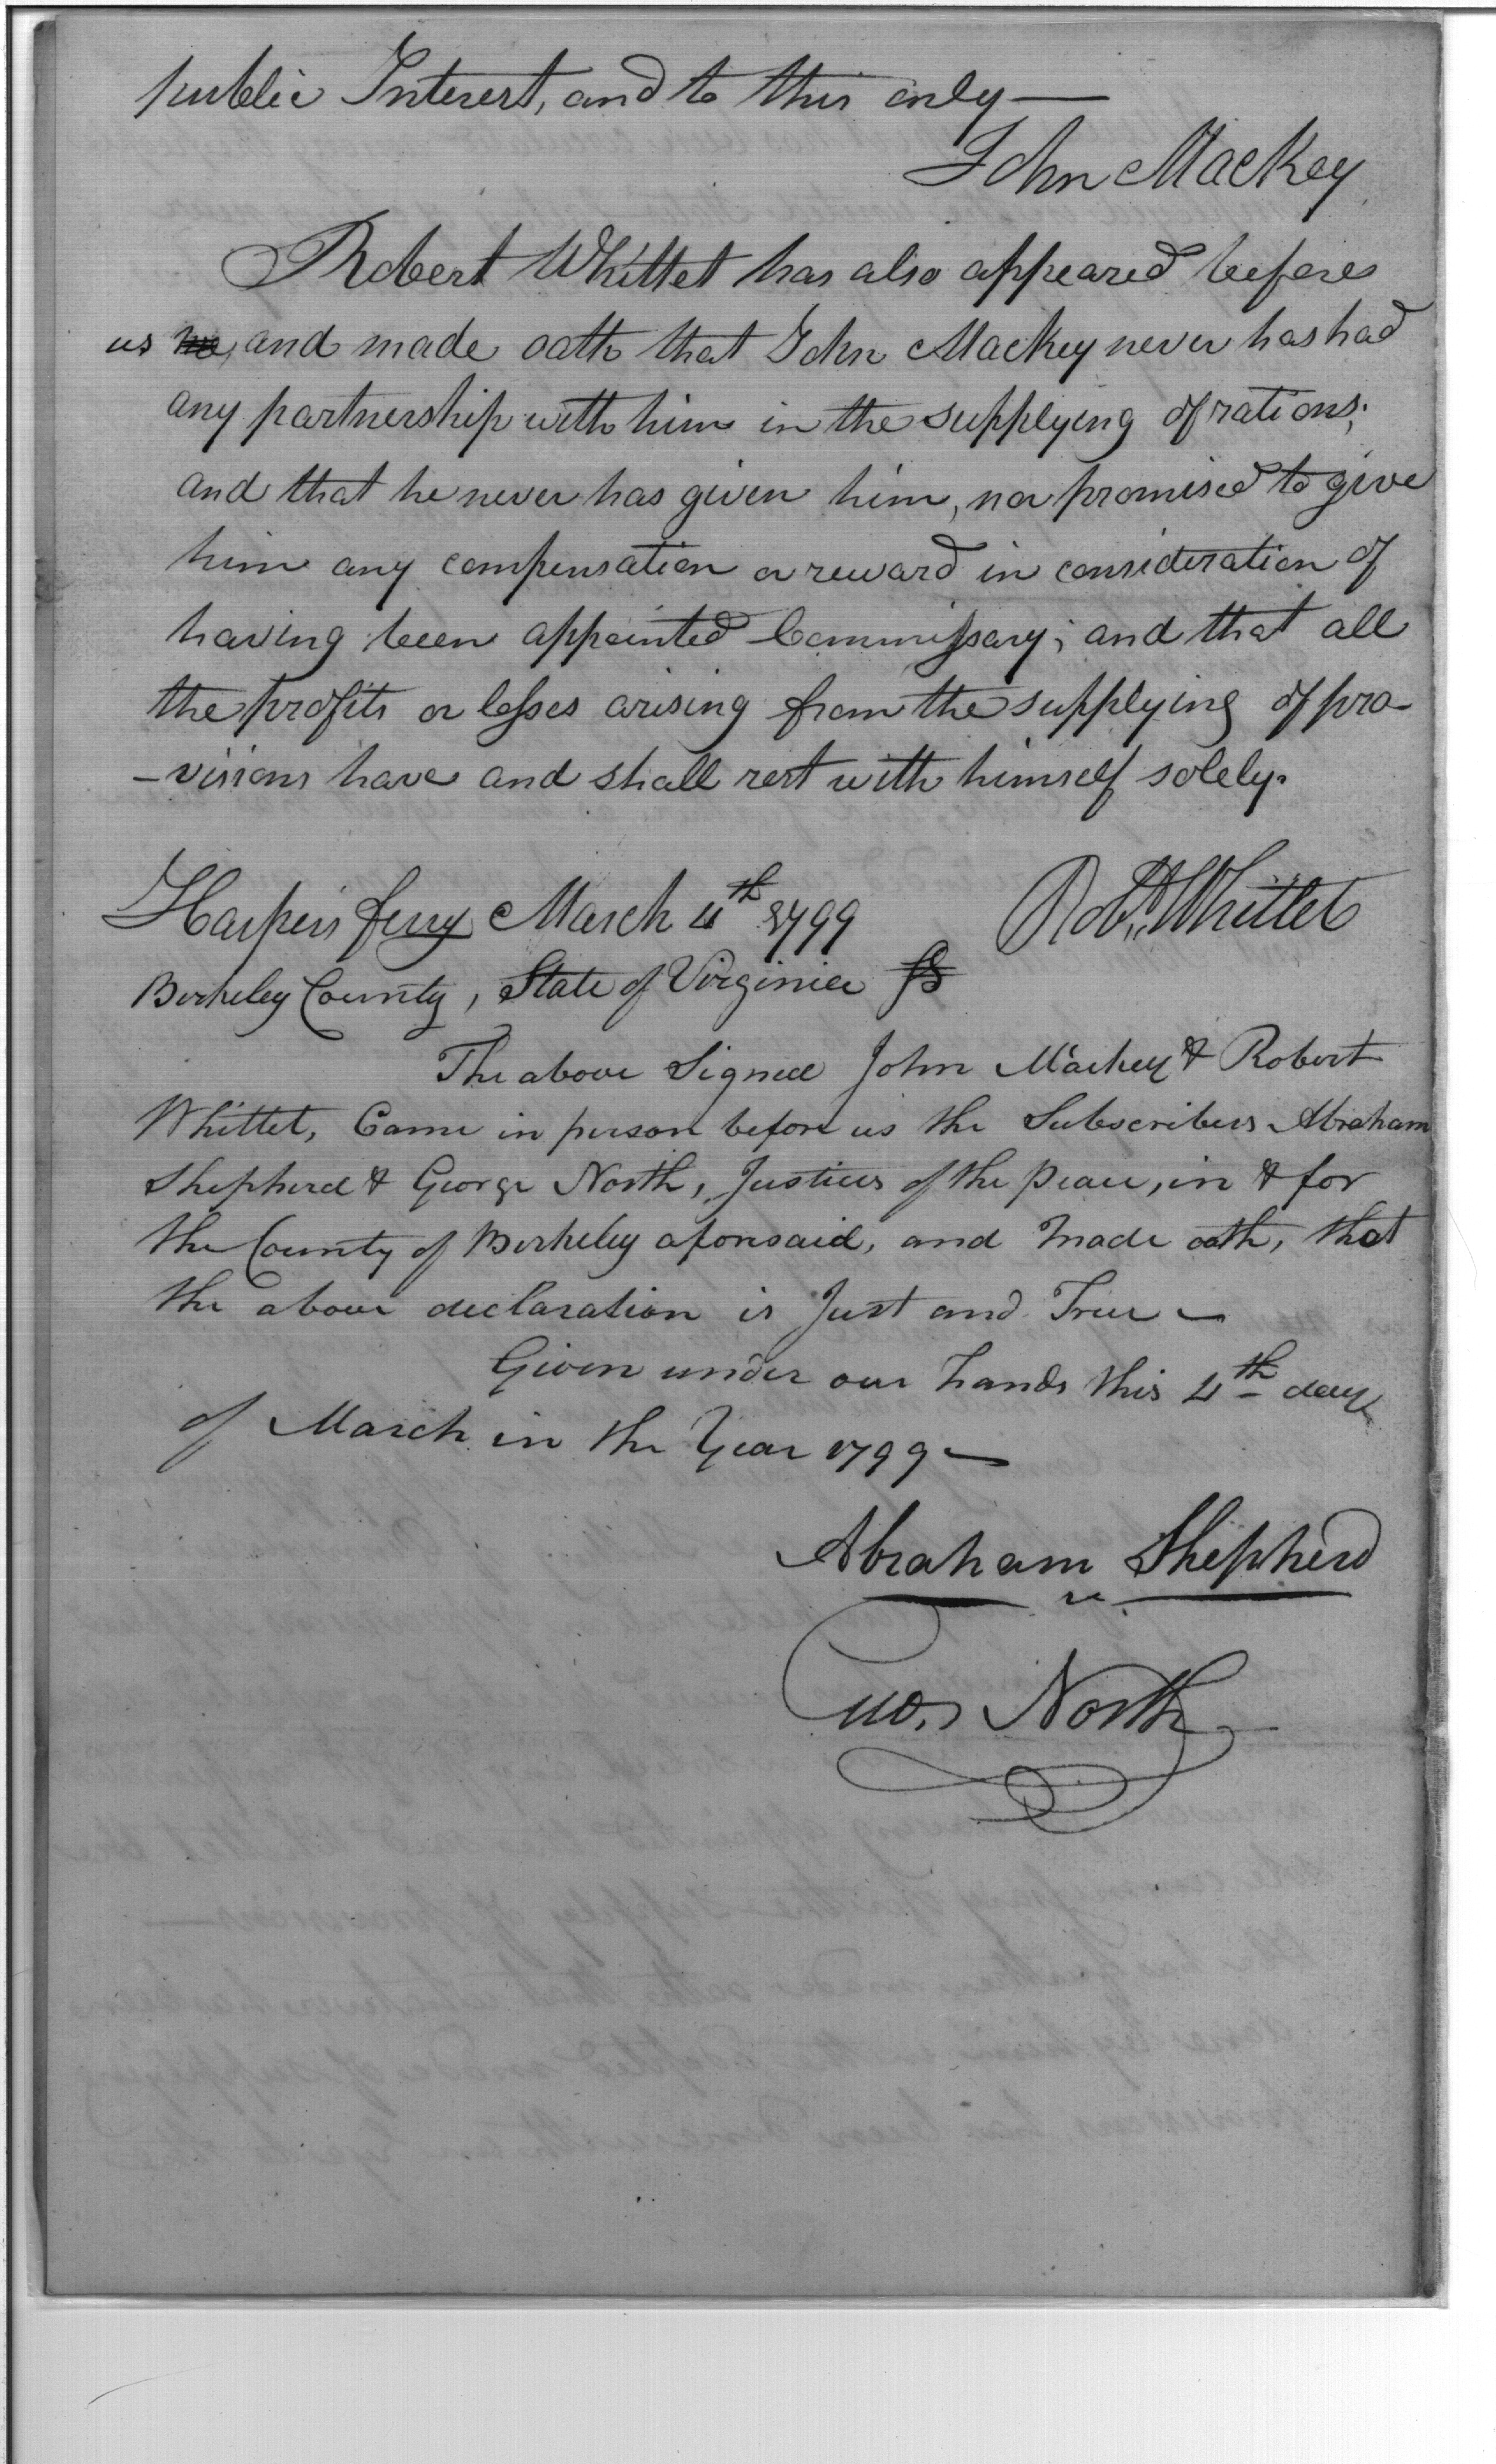 public Interest, and to this only —
John Mackey
Robert Whittet has also appeared before
us me and made oath that John Mackey never has had
any partnership with him in the supplying of rations;
and that he never has given him, nor promised to give
him any compensation or reward in consideration of
having been appointed Commissary; and that all
the profits or losses arising from the supplying of pro-
-visions have and shall rest with himself solely.
Harper's ferry March 4th 1799
Robt. Whittet
Berkeley County, State of Virginia ss
The above Signed John Mackey & Robert
Whittet, Came in person before us the Subscribers Abraham
Shepherd & George North, Justices of the peace, in & for
the County of Berkeley aforesaid, and made oath, that
the above declaration is Just and True —
Given under our hands this 4th day
of March in the Year 1799 —
Abraham Shepherd
Geo. North